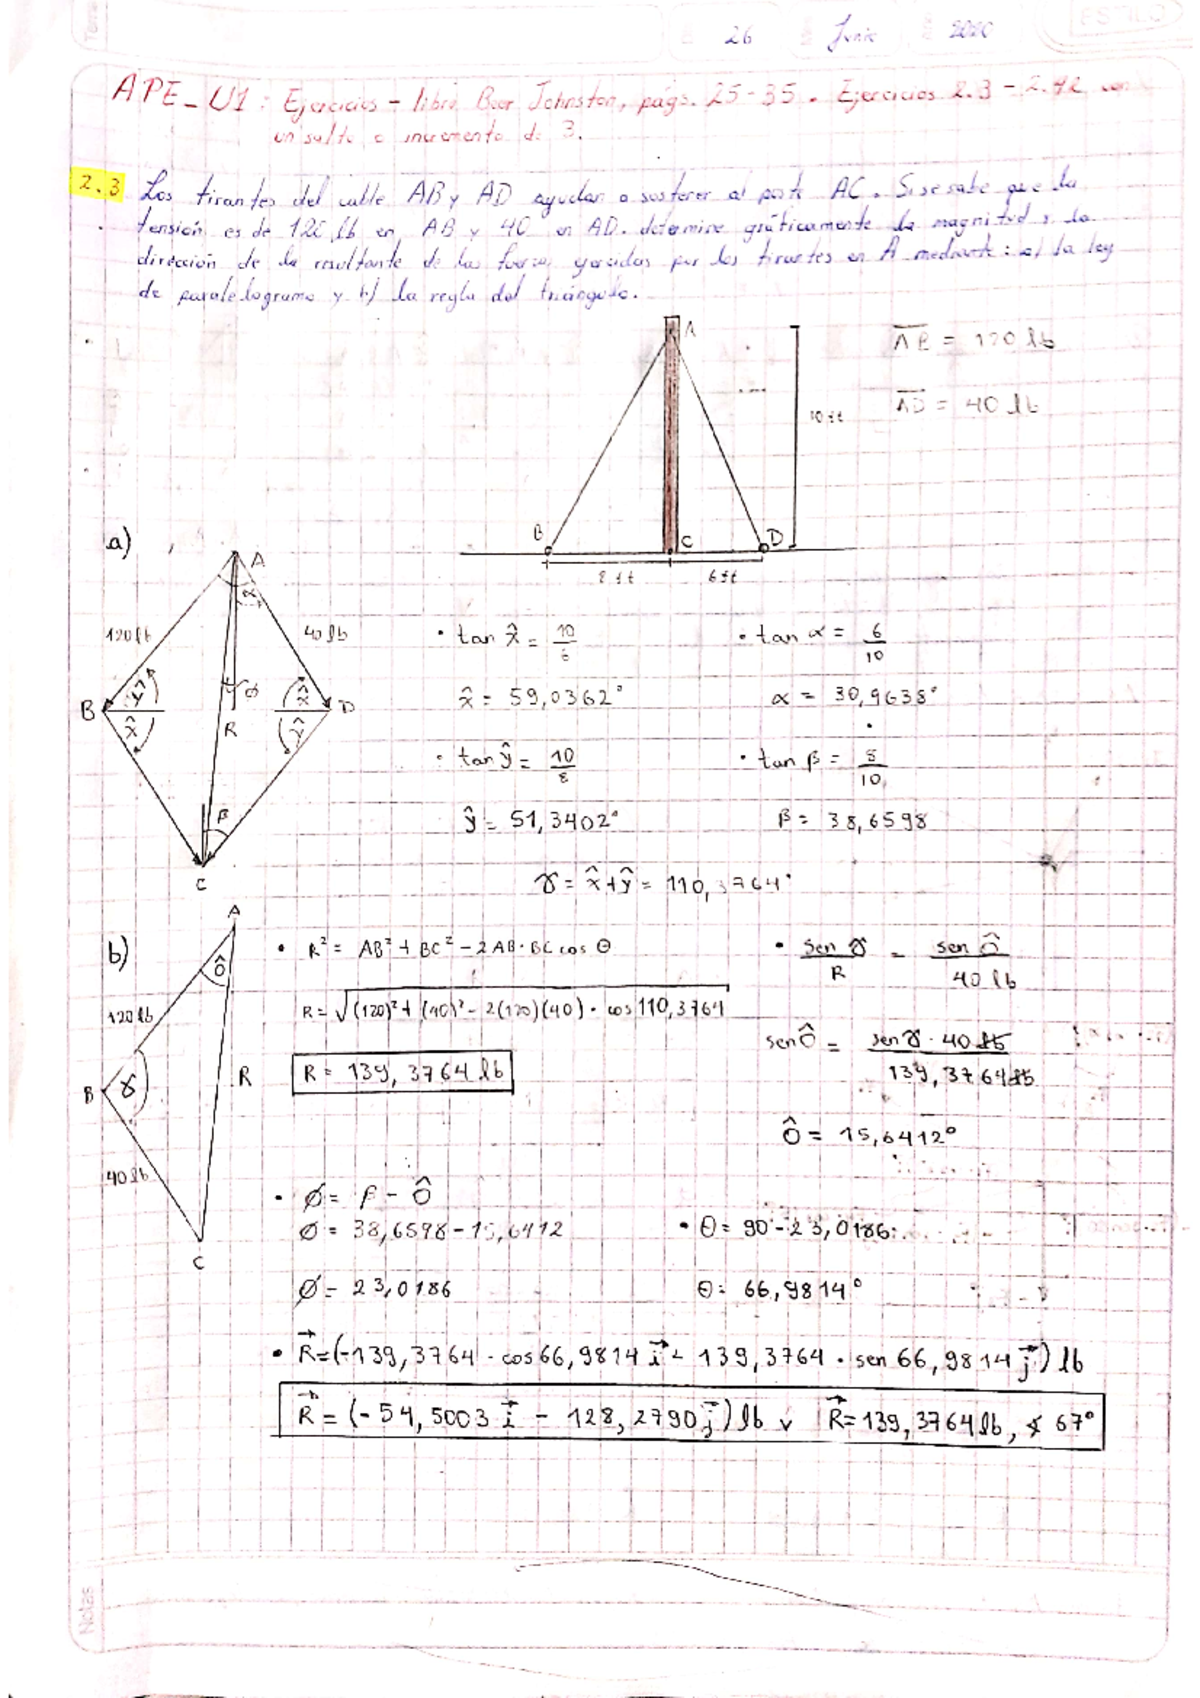 26 Junio 2020
ESTILO
Tema
APE_U1: Ejercicios - libro Beer Johnston, págs. 25-35. Ejercicios 2.3 - 2.42 con
un salto o incremento de 3.
2.3 Los tirantes del cable AB y AD ayudan a sostener al poste AC. Si se sabe que la
tensión es de 120 lb en AB y 40 en AD. determine gráficamente la magnitud y la
dirección de la resultante de las fuerzas ejercidas por los tirantes en A mediante: a) la ley
de paralelogramo y b) la regla del triángulo.
A
AB = 120 lb
AD = 40 lb
10 ft
B C D
8 ft 6 ft
a)
A
α
120 lb 40 lb
ŷ ø x̂
B D
x̂ R ŷ
β
C
• tan x̂ = 10/6 • tan α = 6/10
x̂ = 59,0362° α = 30,9638°
• tan ŷ = 10/8 • tan β = 8/10
ŷ = 51,3402° β = 38,6598
γ = x̂ + ŷ = 110,3764°
b)
A
Ô
120 lb
B γ R
40 lb
C
• R² = AB² + BC² - 2AB·BC cos θ • sen γ/R = sen Ô/40 lb
R = √(120)² + (40)² - 2(120)(40) · cos 110,3764
sen Ô = sen γ · 40 lb/139,3764 lb
R = 139,3764 lb
Ô = 15,6412°
• ø = β - Ô
ø = 38,6598 - 15,6412 • θ = 90 - 23,0186
ø = 23,0186 θ = 66,9814°
• R⃗ = (-139,3764 · cos 66,9814 i⃗ - 139,3764 · sen 66,9814 j⃗) lb
R⃗ = (-54,5003 i⃗ - 128,2790 j⃗) lb v R⃗ = 139,3764 lb, ∡ 67°
Notas